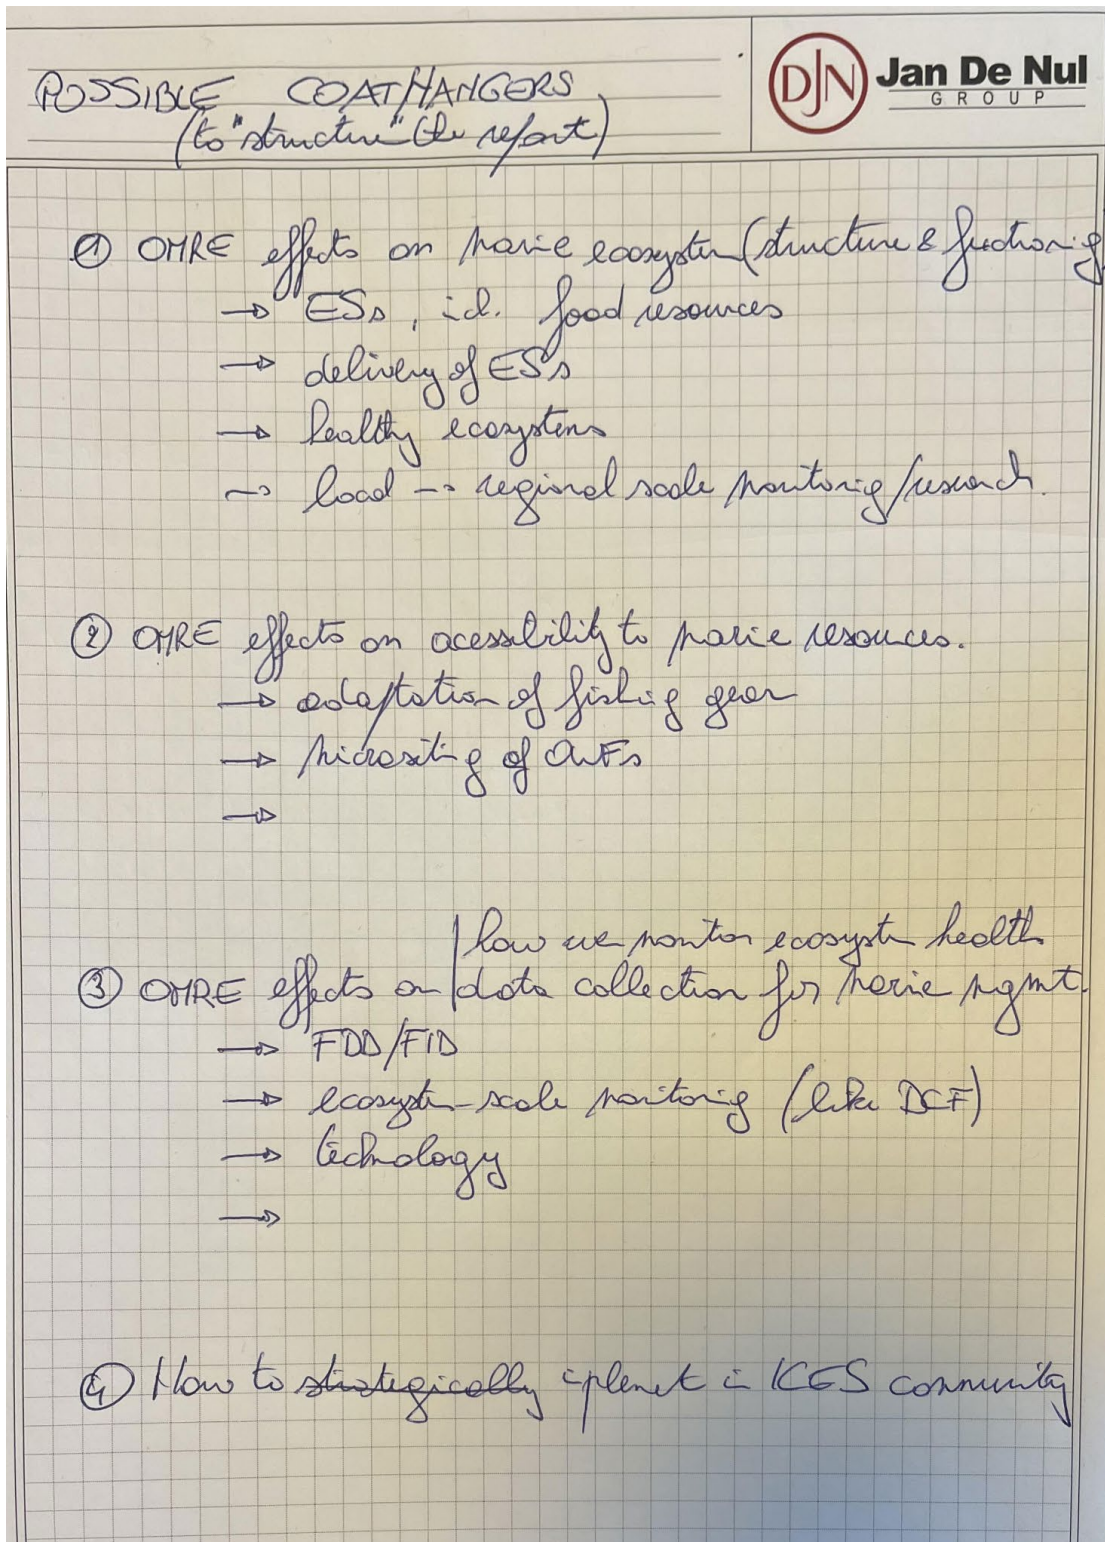 POSSIBLE COATHANGERS
(to "structure" the report)
DJN Jan De Nul
GROUP
① OMRE effects on marine ecosystem (structure & functioning
→ ESs, id. food resources
→ delivery of ESs
→ healthy ecosystems
→ local → regional scale monitoring/research.
② OMRE effects on acessibility to marine resources.
→ adaptation of fishing gear
→ micrositing of OWFs
→
how we monitor ecosystem health
③ OMRE effects on data collection for marine mgmt.
→ FDD/FID
→ ecosystem-scale monitoring (like DCF)
→ technology
→
④ How to strategically implement in ICES community